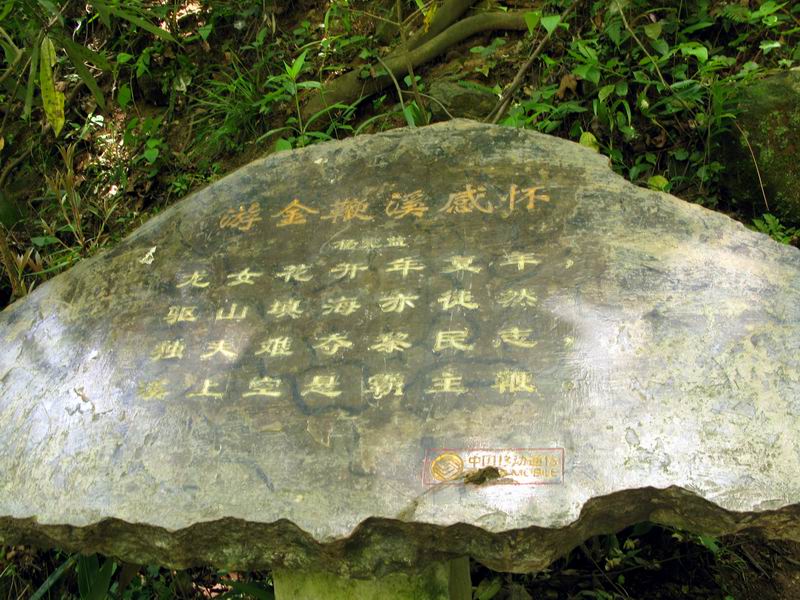 游金鞭溪感怀
龙女花开年复年，
驱山填海亦徒然
独夫难夺黎民志，
溪上空是霸王鞭
中国移动通信